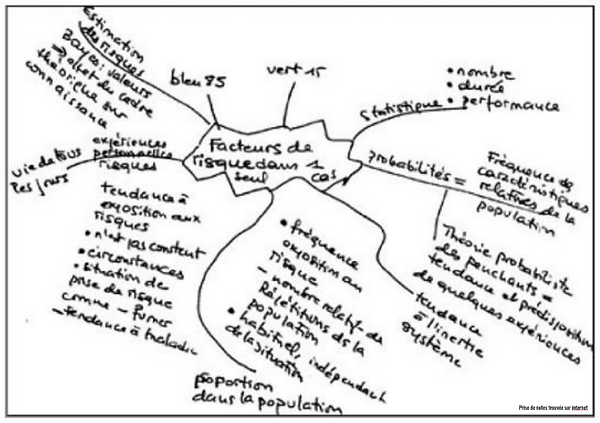 Estimation
des risques
Bayes: valeurs
→ objet du cadre
théorique sur
connaissance
bleu 85
vert 15
Statistique
• nombre
• durée
• performance
Facteurs de
risque dans 1
seul cas
vie de tous
les jours
expériences
personnelles
risques
tendance à
exposition aux
risques
• n'est pas constent
• circonstances
• situation de
prise de risque
comme – fumer
– tendance à maladie
Probabilités =
Fréquence de
caractéristiques
relatives de la
population
Théorie probabiliste
des penchants =
tendance et prédisposition
de quelques expériences
tendance
à l'inertie
système
• fréquence
exposition au
risque
– nombre relatif de
Répétitions de la
population
• habituel, indépendant
de la situation
poportion
dans la population
Prise de notes trouvée sur internet